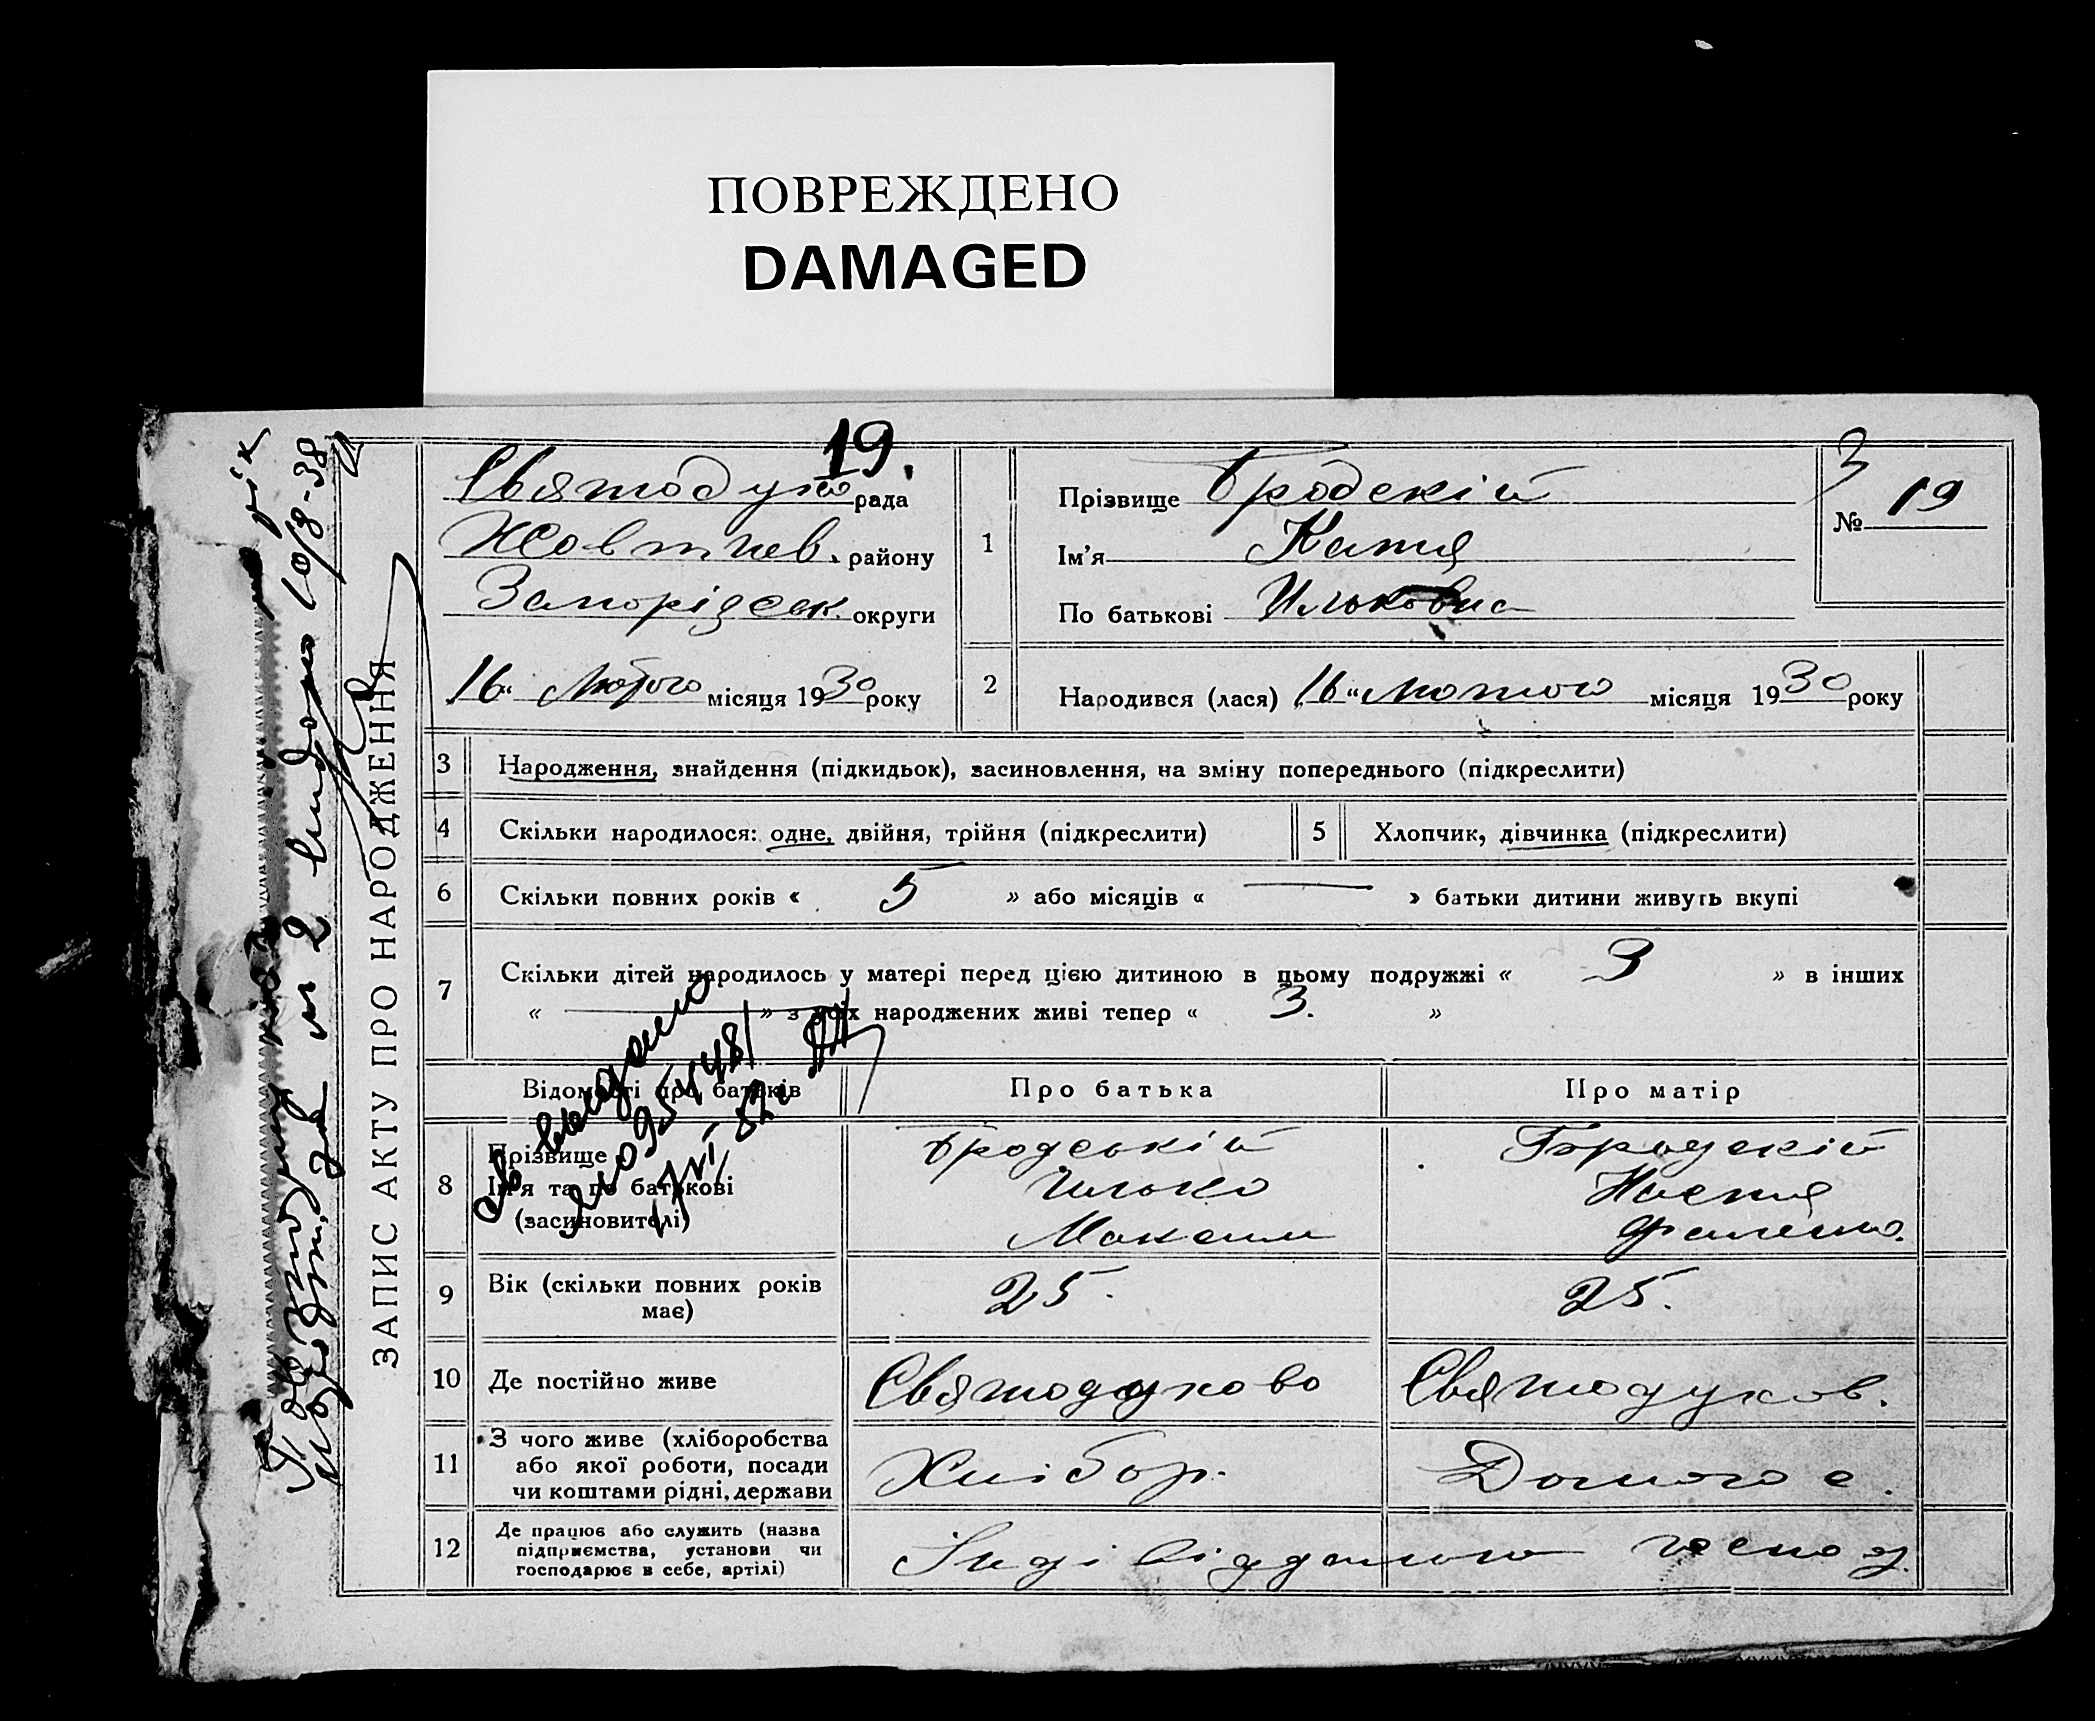 ПОВРЕЖДЕНО
DAMAGED
19.
Святодух рада
Жовтнев. району
Запорізськ. округи
„16“ Лютого місяця 1930 року
1
Прізвище Бродскій
Ім'я Катя
По батькові Ильковна
№ 19
2
Народився (лася) „16“ Лютого місяця 1930 року
ЗАПИС АКТУ ПРО НАРОДЖЕННЯ
3 Народження, знайдення (підкидьок), засиновлення, на зміну попереднього (підкреслити)
4 Скільки народилося: одне, двійня, трійня (підкреслити)
5 Хлопчик, дівчинка (підкреслити)
6 Скільки повних років « 5 » або місяців « — » батьки дитини живуть вкупі
7 Скільки дітей народилось у матері перед цією дитиною в цьому подружжі « 3 » в інших
« — » з усіх народжених живі тепер « 3. »
Відомості про батьків
Про батька
Про матір
8 Прізвище
Ім'я та по батькові
(засиновителі)
Бродський
Илько
Максим
Бродскій
Настя
9 Вік (скільки повних років
має)
25.
25.
10 Де постійно живе
Святодухово
Святодухов.
11 З чого живе (хліборобства
або якої роботи, посади
чи коштами рідні, держави
Хлібор.
Домогос.
12 Де працює або служить (назва
підприємства, установи чи
господарює в себе, артілі)
Індівідуально господ.